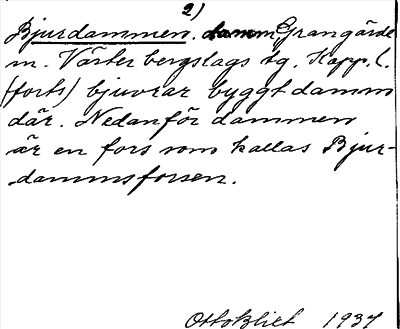 2)
Bjurdammen. Grangärde
m. Väster bergslags tg. Kopp. l.
(forts) bjuvrar byggt damm
där. Nedanför dammen
är en fors som kallas Bjur-
dammsforsen.
Otto Blixt 1937